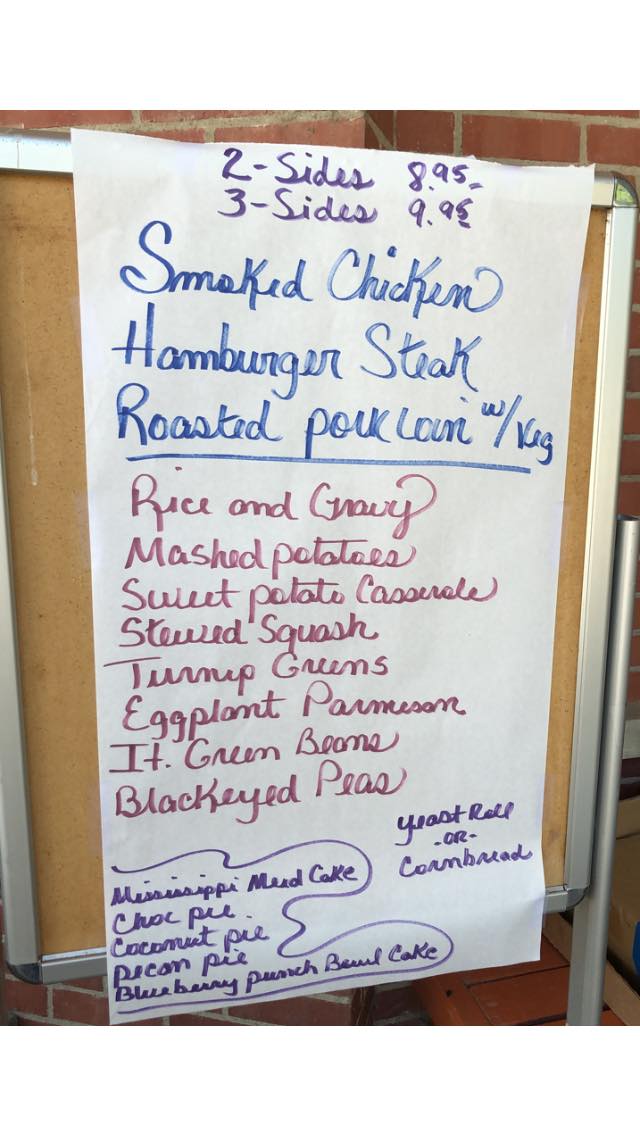 2-Sides 8.95
3-Sides 9.95
Smoked Chicken
Hamburger Steak
Roasted pork Loin w/ Veg
Rice and Gravy
Mashed potatoes
Sweet potato Casserole
Stewed Squash
Turnip Greens
Eggplant Parmesan
It. Green Beans
Blackeyed Peas
Yeast Roll
-OR-
Cornbread
Mississippi Mud Cake
Choc pie
Coconut pie
pecan pie
Blueberry punch Bowl Cake